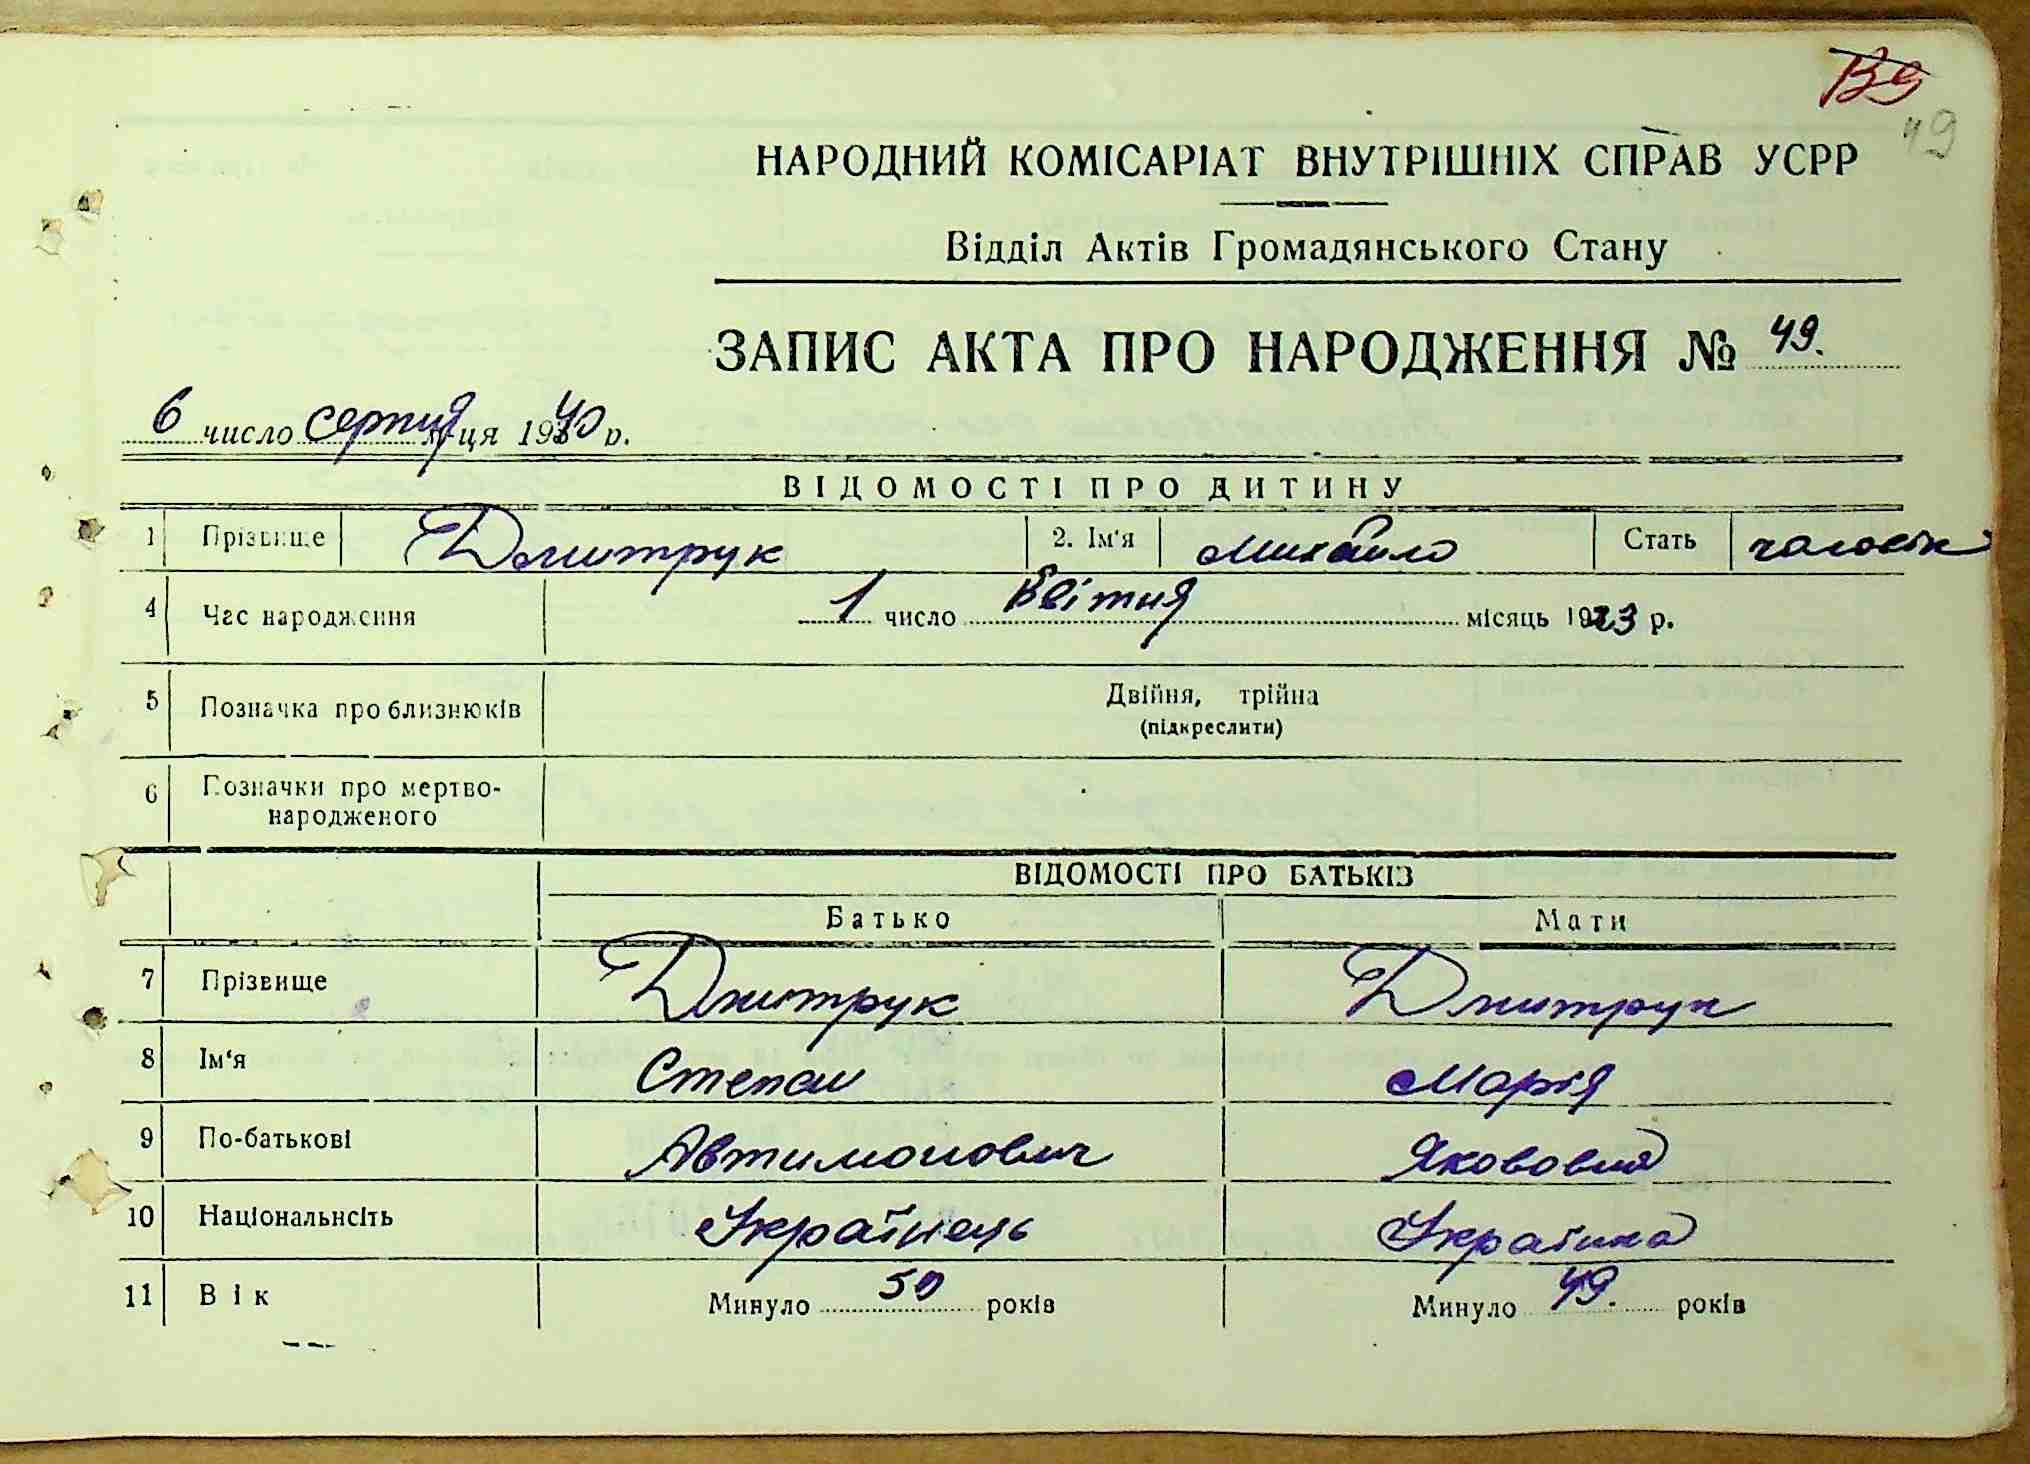 139
49
НАРОДНИЙ КОМІСАРІАТ ВНУТРІШНІХ СПРАВ УСРР
Відділ Актів Громадянського Стану
ЗАПИС АКТА ПРО НАРОДЖЕННЯ № 49.
6 число серпня м-ця 1940 р.
ВІДОМОСТІ ПРО ДИТИНУ
1 Прізвище Дмитрук 2. Ім'я Михайло Стать чоловік
4 Час народження 1 число Квітня місяць 1923 р.
5 Позначка про близнюків Двійня, трійна
(підкреслити)
6 Позначки про мертво-
народженого
ВІДОМОСТІ ПРО БАТЬКІВ
Батько Мати
7 Прізвище Дмитрук Дмитрук
8 Ім'я Степан Марія
9 По-батькові Автимонович Якововна
10 Національнсіть Українець Українка
11 Вік Минуло 50 років Минуло 49. років